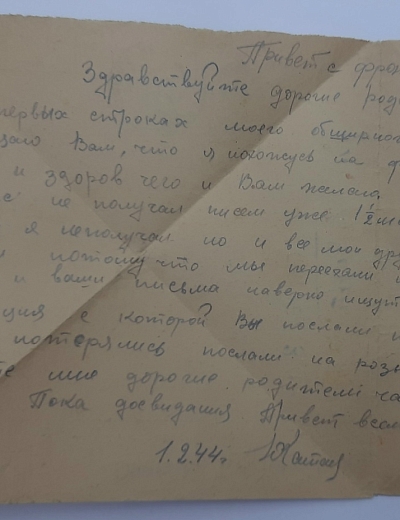 Привет с фрон
Здравствуйте дорогие род
первых строках моего обширного
щаю Вам, что я нахожусь на ф
и здоров чего и Вам желаю
с не получал писем уже 1½ м
я неполучал но и все мои др
потому что мы переехали
и ваши письма наверно ищут
ция с которой Вы послали
потерялись послали на роз
те мне дорогие родители ча
Пока досвидания. Привет всем
1.2.44г.